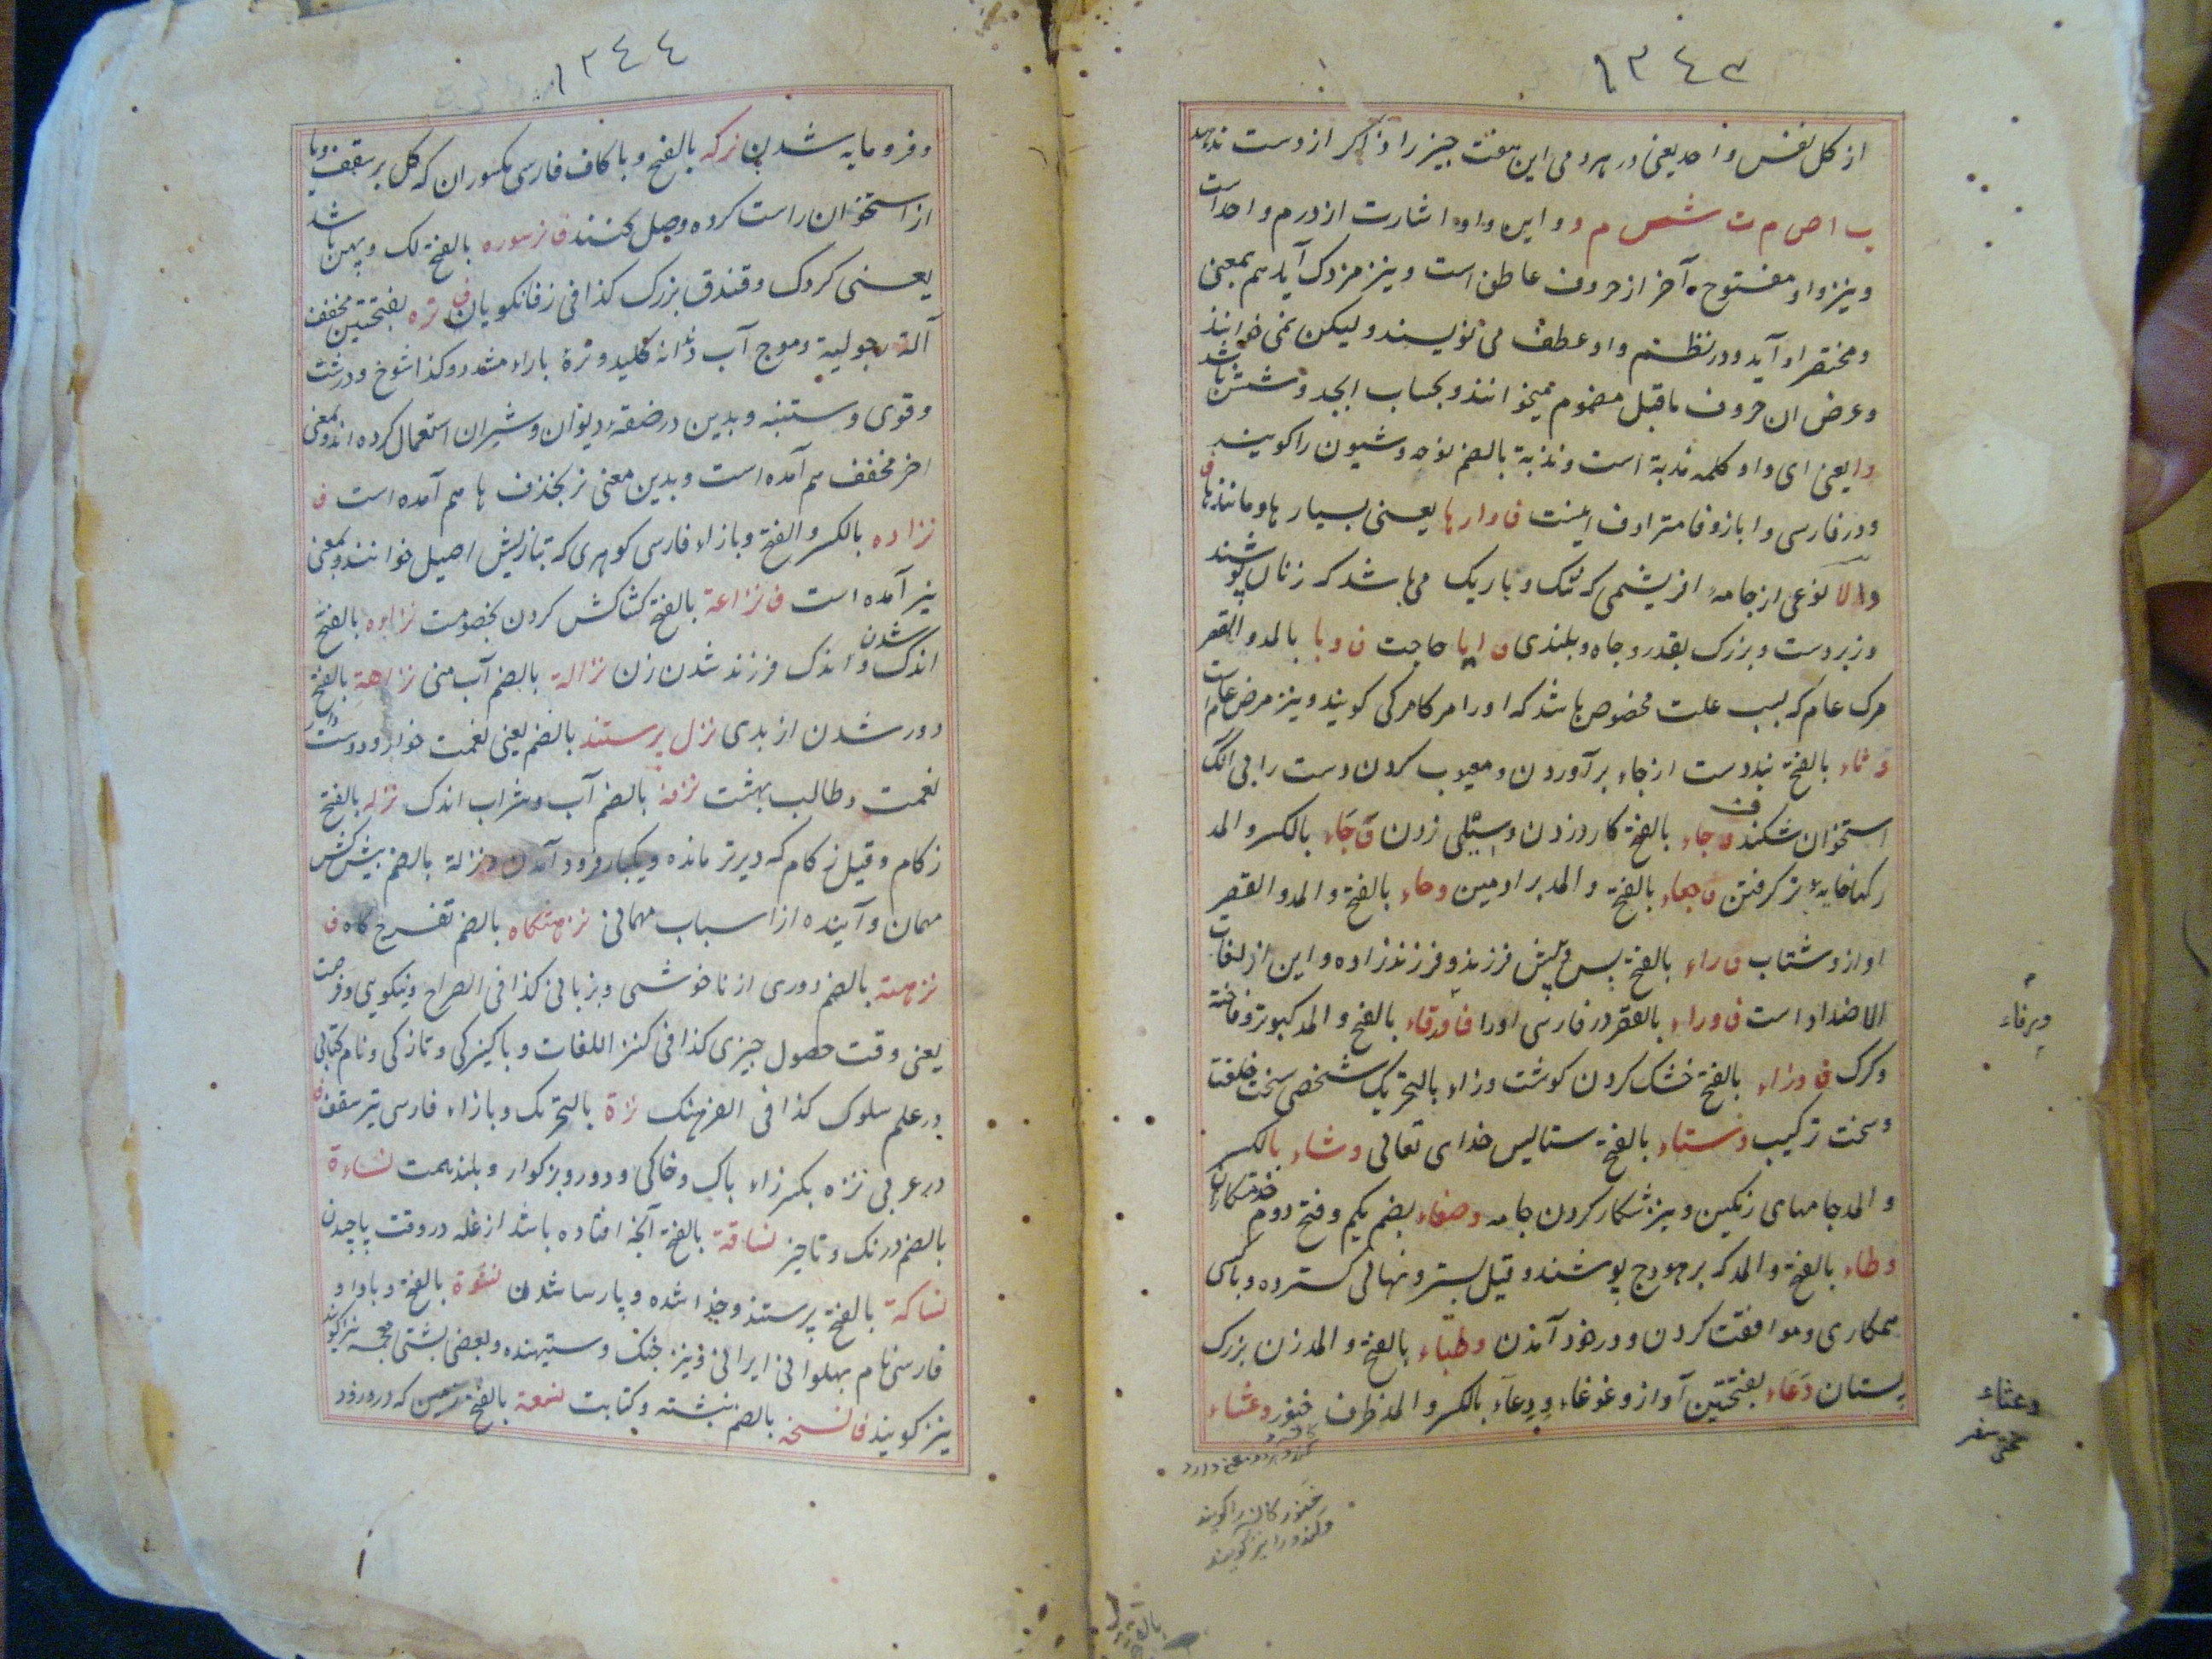 ١٣٤٣
از کل نفس واحد یعنی در هر دمی این هفت چیز را ذاکر از دست ندهد
ب ا ص م ت ش س م و و این واو اشارت از درم واحد است
و نیز واو مفتوحه آخر از حروف عاطف است و نیز مزدک آید هم بمعنی
و مختصر او آید و در نظم واو عطف می نویسند و لیکن نمی خوانند
و عرض ان حروف ماقبل مضموم میخوانند و بحساب ابجد و شش باشد
وا یعنی ای واو کلمه ندبة است و ندبة بالضم نوحه و شیون را گویند
و در فارسی وا باز و فا مترادف اینست ف وارها یعنی بسیارها و مانندها ف
والا نوعی از جامه ابریشمی که تنک و باریک می باشد که زنان پوشند
و زبردست و بزرک بقدر و جاه و بلندی ف وایا حاجت ف وبا بالمد و القصر
مرک عام که بسبب علت مخصوص باشد که اورا مرکامرکی کویند و نیز مرض عام است
وثاء بالفتح بند دست از جاء برآوردن و معیوب کردن دست را بی انک
استخوان شکند ف وجاء بالفتح کارد زدن و سیلی زدن ف وجاء بالکسر و المد
رکهاء خایه نر کرفتن ف وجعاء بالفتح و المد برادمین وحاء بالفتح و المد و القصر
اواز و شتاب ف وراء بالفتح پس و پیش فرزند و فرزندزاده و این از لغات
الاضداد است ف وراء بالقصر در فارسی اورا ف ورقاء بالفتح و المد کبوتر و فاخته
و کرک ف وزاء بالفتح خشک کردن کوشت وزاء بالتحریک شخصی سخت خلقت
و سخت ترکیب وستاء بالفتح ستایش خدای تعالی وشاء بالکسر
و المد جامهای رنکین و نیز شکار کردن جامه وصفاء بضم یکم و فتح دوم خدمتکاران
وطاء بالفتح و المد که بر هودج پوشند و قیل بستر و نهالی کسترده و با کسی
همکاری و موافقت کردن و در خود آمدن وطباء بالفتح و المد زن بزرک
پستان وعاء بفتحتین آواز و غوغاء و وعاء بالکسر و المد ظرف خنور وعثاء
ورقاء
وعثاء
سختی سفر
خنور کان را کویند
و کندو را نیز کویند
١٣٤٤
و فرومایه شدن نرکه بالفتح و با کاف فارسی مکسور ان که کل بر سقف و یا
از استخوان راست کرده وصل کنند ف نرسوره بالفتح لک و پهن باشد
یعنی کردک و قندق بزرک کذا فی زفانکویان ف نره بفتحتین مخفف
آلة رجولیة و موج آب و دانه کلید و نرة باراء مشدد و کذا شوخ و درشت
و قوی و ستنبه و بدین در صفة دیوان و شیران استعمال کرده اند و بمعنی
اخر مخفف هم آمده است و بدین معنی نر بحذف ها هم آمده است ف
نزاده بالکسر و الفتح و با زاء فارسی کوهری که بتازیش اصیل خوانند و بمعنی
نیز آمده است ف نزاعة بالفتح کشاکش کردن بخصومت نزاوه بالفتح
اندک شدن و اندک فرزند شدن زن نزالة بالضم آب منی نزاهة بالفتح
دور شدن از بدی نزل پرستند بالضم یعنی نعمت خوار و دوست دار
نعمت و طالب بهشت نزفة بالضم آب و شراب اندک نزله بالفتح
زکام و قیل زکام که دیرتر مانده و یکبار فرود آمدن و نزلة بالضم پیش کش
مهمان و آینده از اسباب مهمانی نزهتکاه بالضم تفرح کاه ف
نزهة بالضم دوری از ناخوشی و بزبانی کذا فی الصراح و نیکویی و فرصت
یعنی وقت حصول چیزی کذا فی کنز اللغات و پاکیزکی و تازکی و نام کتابی
در علم سلوک کذا فی الفرهنک نژة بالتحریک و با زاء فارسی تیر سقف ف
در عربی نزه بکسر زاء پاک و خاکی و دور و بزرکوار و بلند همت نساءة
بالضم درنک و تاخیر نساقة بالفتح آنچه افتاده باشد از غله در وقت پاچیدن
نساکة بالفتح پرستند و خدا شده و پارسا شدن نسفوة بالفتح و با واو
فارسی نام پهلوانی ایرانی و نیز جنک و ستیهنده و بعضی بشتی معجمه نیز کویند
نیز کویند ف نسخه بالضم نبشته و کتابت نسعة بالفتح زمین که در درود